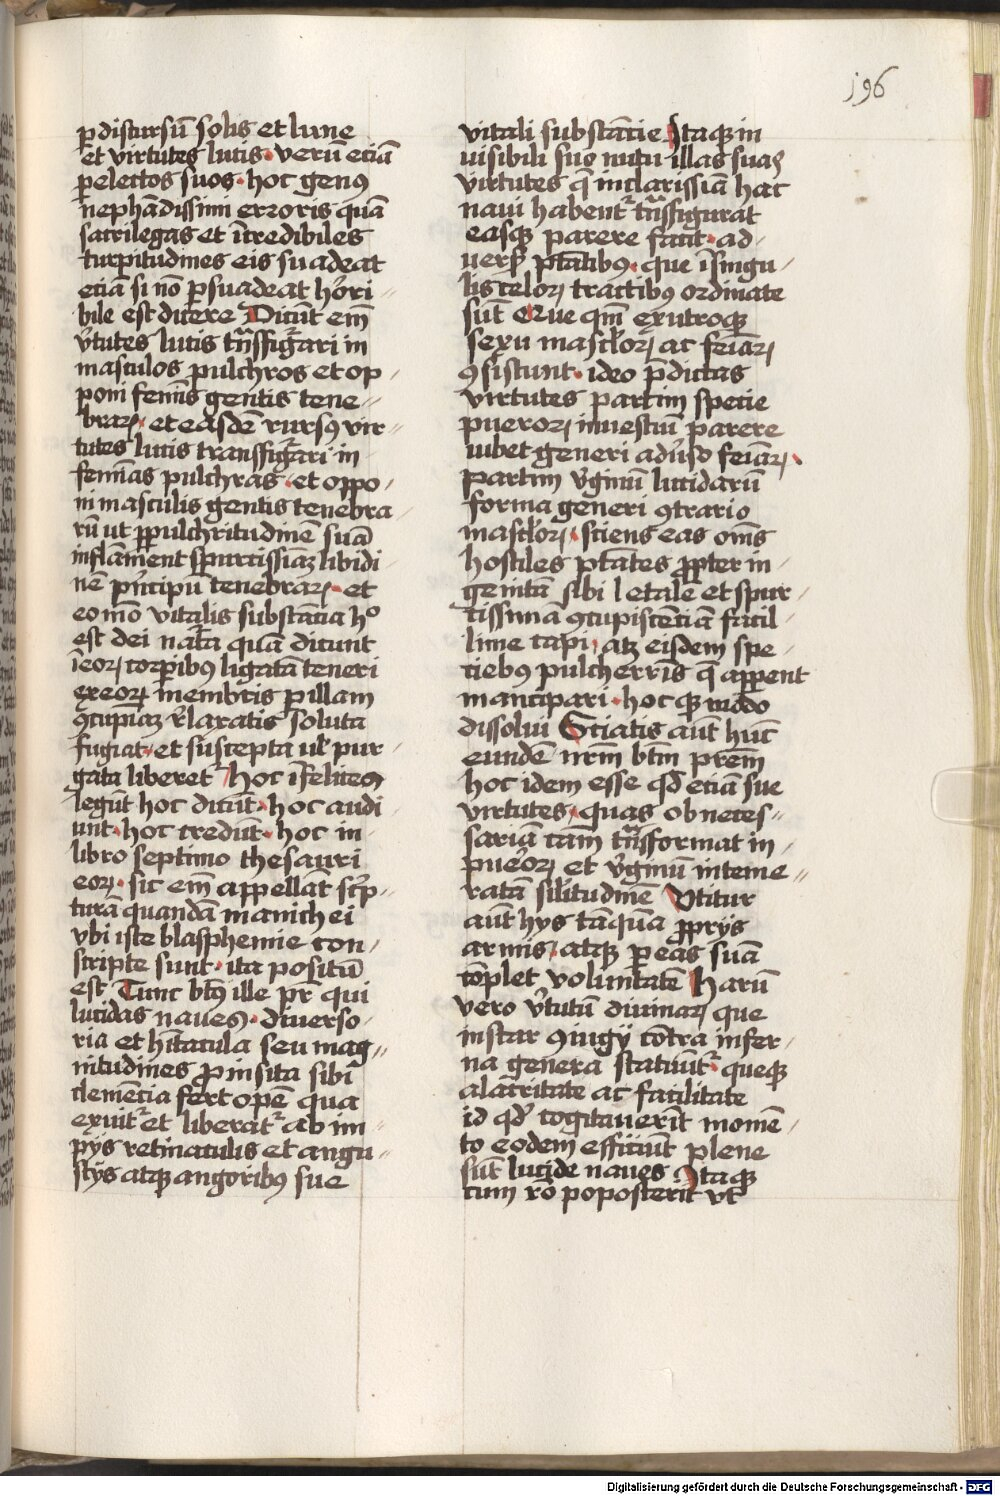 196
p discursū solis et lune
et virtutes lucis · verū eciā
p electos suos · hoc genꝰ
nephādissimi erroris quā
sacrilegas et īcredibiles
turpitudines eis suadeat
eciā si nō psuadeat horri
bile est dicere Dicūt em̄
v̓tutes lucis tn̄sfigurari in
masculos pulchros et op
poni femīs gentis tene
braꝝ · et easdē rursꝰ vir
tutes lucis transfigurari in
feminas pulchras · et oppo
ni masculis gentis tenebra
rū ut p pulchritudinē suā
inflāment spurcissimaꝫ libidi
nē pn̄cipū tenebraꝝ · et
eo mō vitalis substācia hᵒ
est dei nat̄a quā dicunt
ī eoꝝ corpibꝰ ligatā teneri
ex eoꝝ membris p illam
ꝯcupīaꝫ rͤlaxatis soluta
fugiat · et suscepta uel pur
gata liberetᷣ Hoc īfelices
legūt hoc dicūt · hoc audi
unt · hoc credūt · hoc in
libro septimo thesauri
eoꝝ · sic em̄ appellāt scp̄
turā quandā manichei
vbi iste blasphemie con
scripte sunt · ita positū
est Tunc bt̄ꝰ ille pr̄ qui
lucidas naues · diuerso
ria et hītacula seu mag
nitudines pro insita sibi
clemēcia fert opē qua
exuitᷣ et liberatᷣ ab im
pijs retinaculis et angu
stijs atqꝫ angoribꝰ sue
vitali substācie Itaqꝫ in
uisibili suo nutu illas suas
virtutes q̄ in clarissiā hac
naui habentᷣ tn̄sfigurat
easqꝫ parere facit · ad
uersꝰ ptātibꝰ · que ī singu
lis celoꝝ tractibꝰ ordinate
sūt Que qm̄ ex utroqꝫ
sexu masculoꝝ ac feīaꝝ
ꝯsistunt · ideo p̄dictas
virtutes partim specie
pueroꝝ inuestiū parere
iubet generi aduerso feīaꝝ ·
partim v̓ginū lucidarū
forma generi ꝯtrario
masculoꝝ · sciens eas om̄s
hostiles ptātes propter in
genitā sibi letale et spur
tissimā ꝯcupiscenciā facil
lime capi · atqꝫ eisdem spe
ciebꝰ pulcherris q̄ apparent
mancipari · hoc qꝫ modo
dissolui Sciatis aut̄ hūc
eundē nr̄m bt̄m prēm
hoc idem esse qd̄ eciā sue
virtutes · quas ob neces
sariā cām tn̄sformat in
pueroꝝ et v̓ginū inteme
ratā silitudinē Vtitur
aut̄ hys tāquā proprijs
armis · atqꝫ p eas suā
cōplet voluntatē Harū
vero v̓tutū diuinaꝝ que
instar ꝯiugij cōtra infer
na genera statuūtᷣ · queqꝫ
alacritate ac facilitate
id qd̄ cogitauerīt momē
to eodem efficiūt plene
sūt lucide naues Itaqꝫ
cum rō poposcerit vt
Digitalisierung gefördert durch die Deutsche Forschungsgemeinschaft - DFG